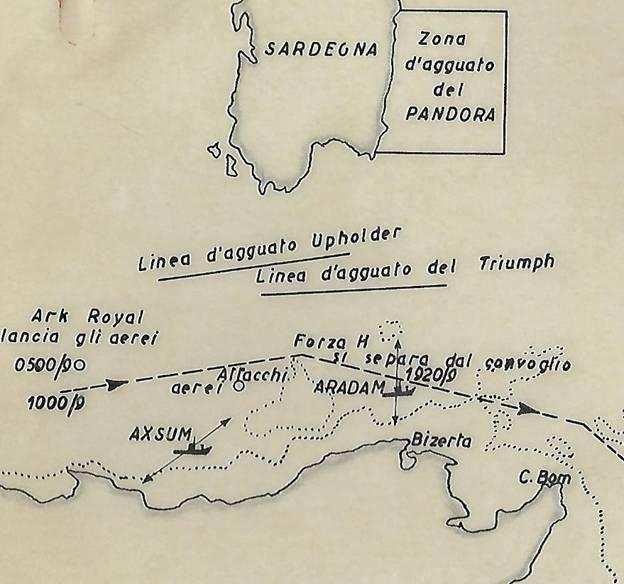 SARDEGNA
Zona
d'agguato
del
PANDORA
Linea d'agguato Upholder
Linea d'agguato del Triumph
Ark Royal
lancia gli aerei
0500/9
1000/9
Forza H
si separa dal convoglio
1920/9
Attacchi
aerei
ARADAM
AXSUM
Bizerta
C. Bon